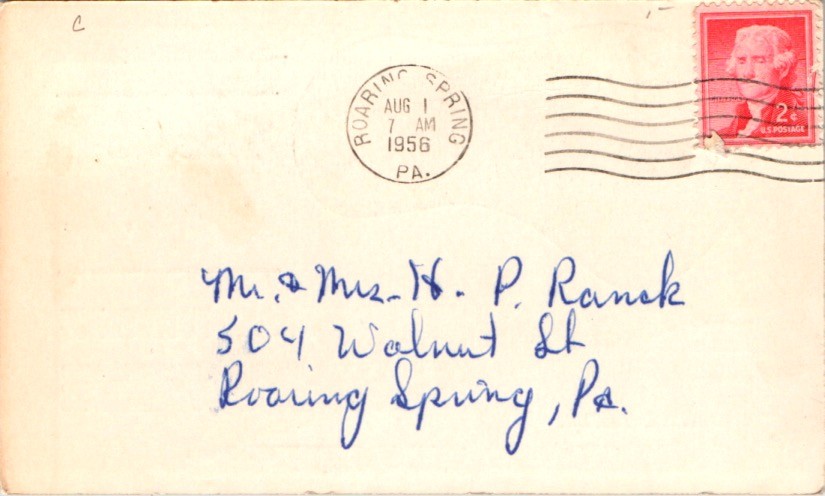 C
ROARING SPRING
AUG 1
7 AM
1956
PA.
2¢
U.S. POSTAGE
Mr. & Mrs. H. P. Ranck
504 Walnut St
Roaring Spring, Pa.